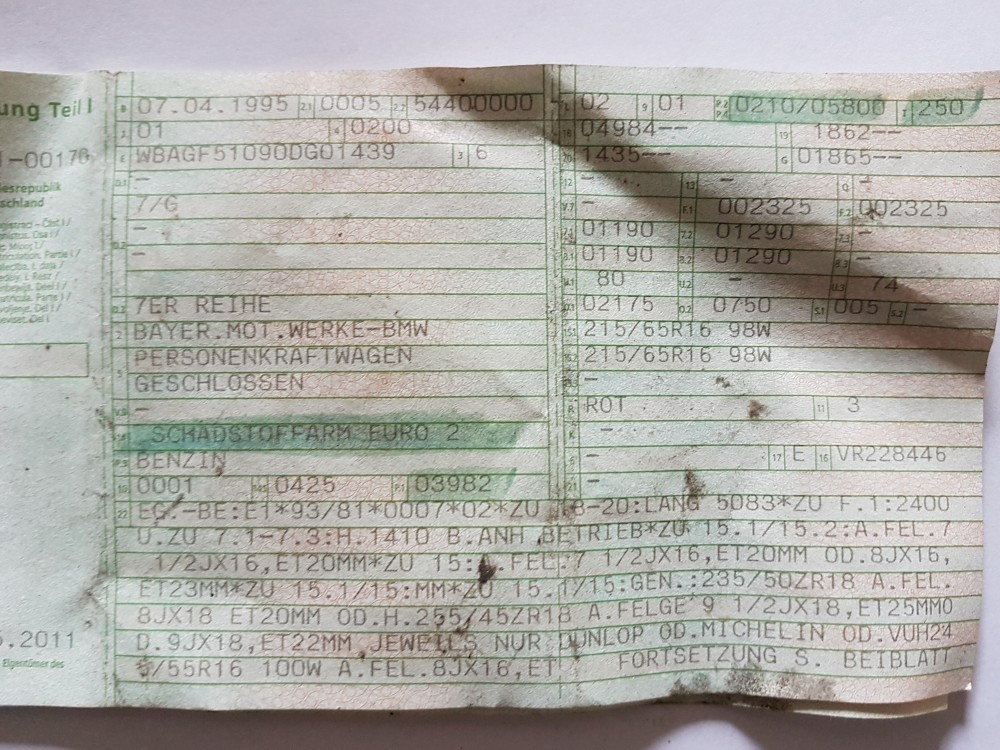 ung Teil I
-00170
esrepublik
schland
.2011
Eigentümer des
B 07.04.1995 2.1 0005 2.2 54400000
J 01 4 0200
E WBAGF51090DG01439 3 6
D.1 -
7/G
D.2 -
-
D.3 7ER REIHE
2 BAYER.MOT.WERKE-BMW
5 PERSONENKRAFTWAGEN
GESCHLOSSEN
V.9 -
SCHADSTOFFARM EURO 2
P.3 BENZIN
10 0001 14.1 0425 P.1 03982
L 02 9 01 P.2 P.4 0210/05800 T 250
18 04984-- 19 1862--
20 1435-- G 01865--
12 - 13 - Q -
V.7 - F.1 002325 F.2 002325
7.1 01190 7.2 01290 7.3 -
8.1 01190 8.2 01290 8.3 -
U.1 80 U.2 - U.3 74
O.1 02175 O.2 0750 S.1 005 S.2 -
15.1 215/65R16 98W
15.2 215/65R16 98W
15.3 -
R ROT 11 3
K -
6 - 17 E 16 VR228446
21 -
22 EG.-BE:E1*93/81*0007*02*ZU 18-20:LANG 5083*ZU F.1:2400
U.ZU 7.1-7.3:H.1410 B.ANH BETRIEB*ZU 15.1/15.2:A.FEL.7
1/2JX16,ET20MM*ZU 15: A.FEL.7 1/2JX16,ET20MM OD.8JX16,
ET23MM*ZU 15.1/15:MM*ZU 15.1/15:GEN.:235/50ZR18 A.FEL.
8JX18 ET20MM OD.H.255/45ZR18 A.FELGE 9 1/2JX18,ET25MMO
D.9JX18,ET22MM JEWEILS NUR DUNLOP OD.MICHELIN OD.VUH24
5/55R16 100W A.FEL.8JX16,ET FORTSETZUNG S. BEIBLATT